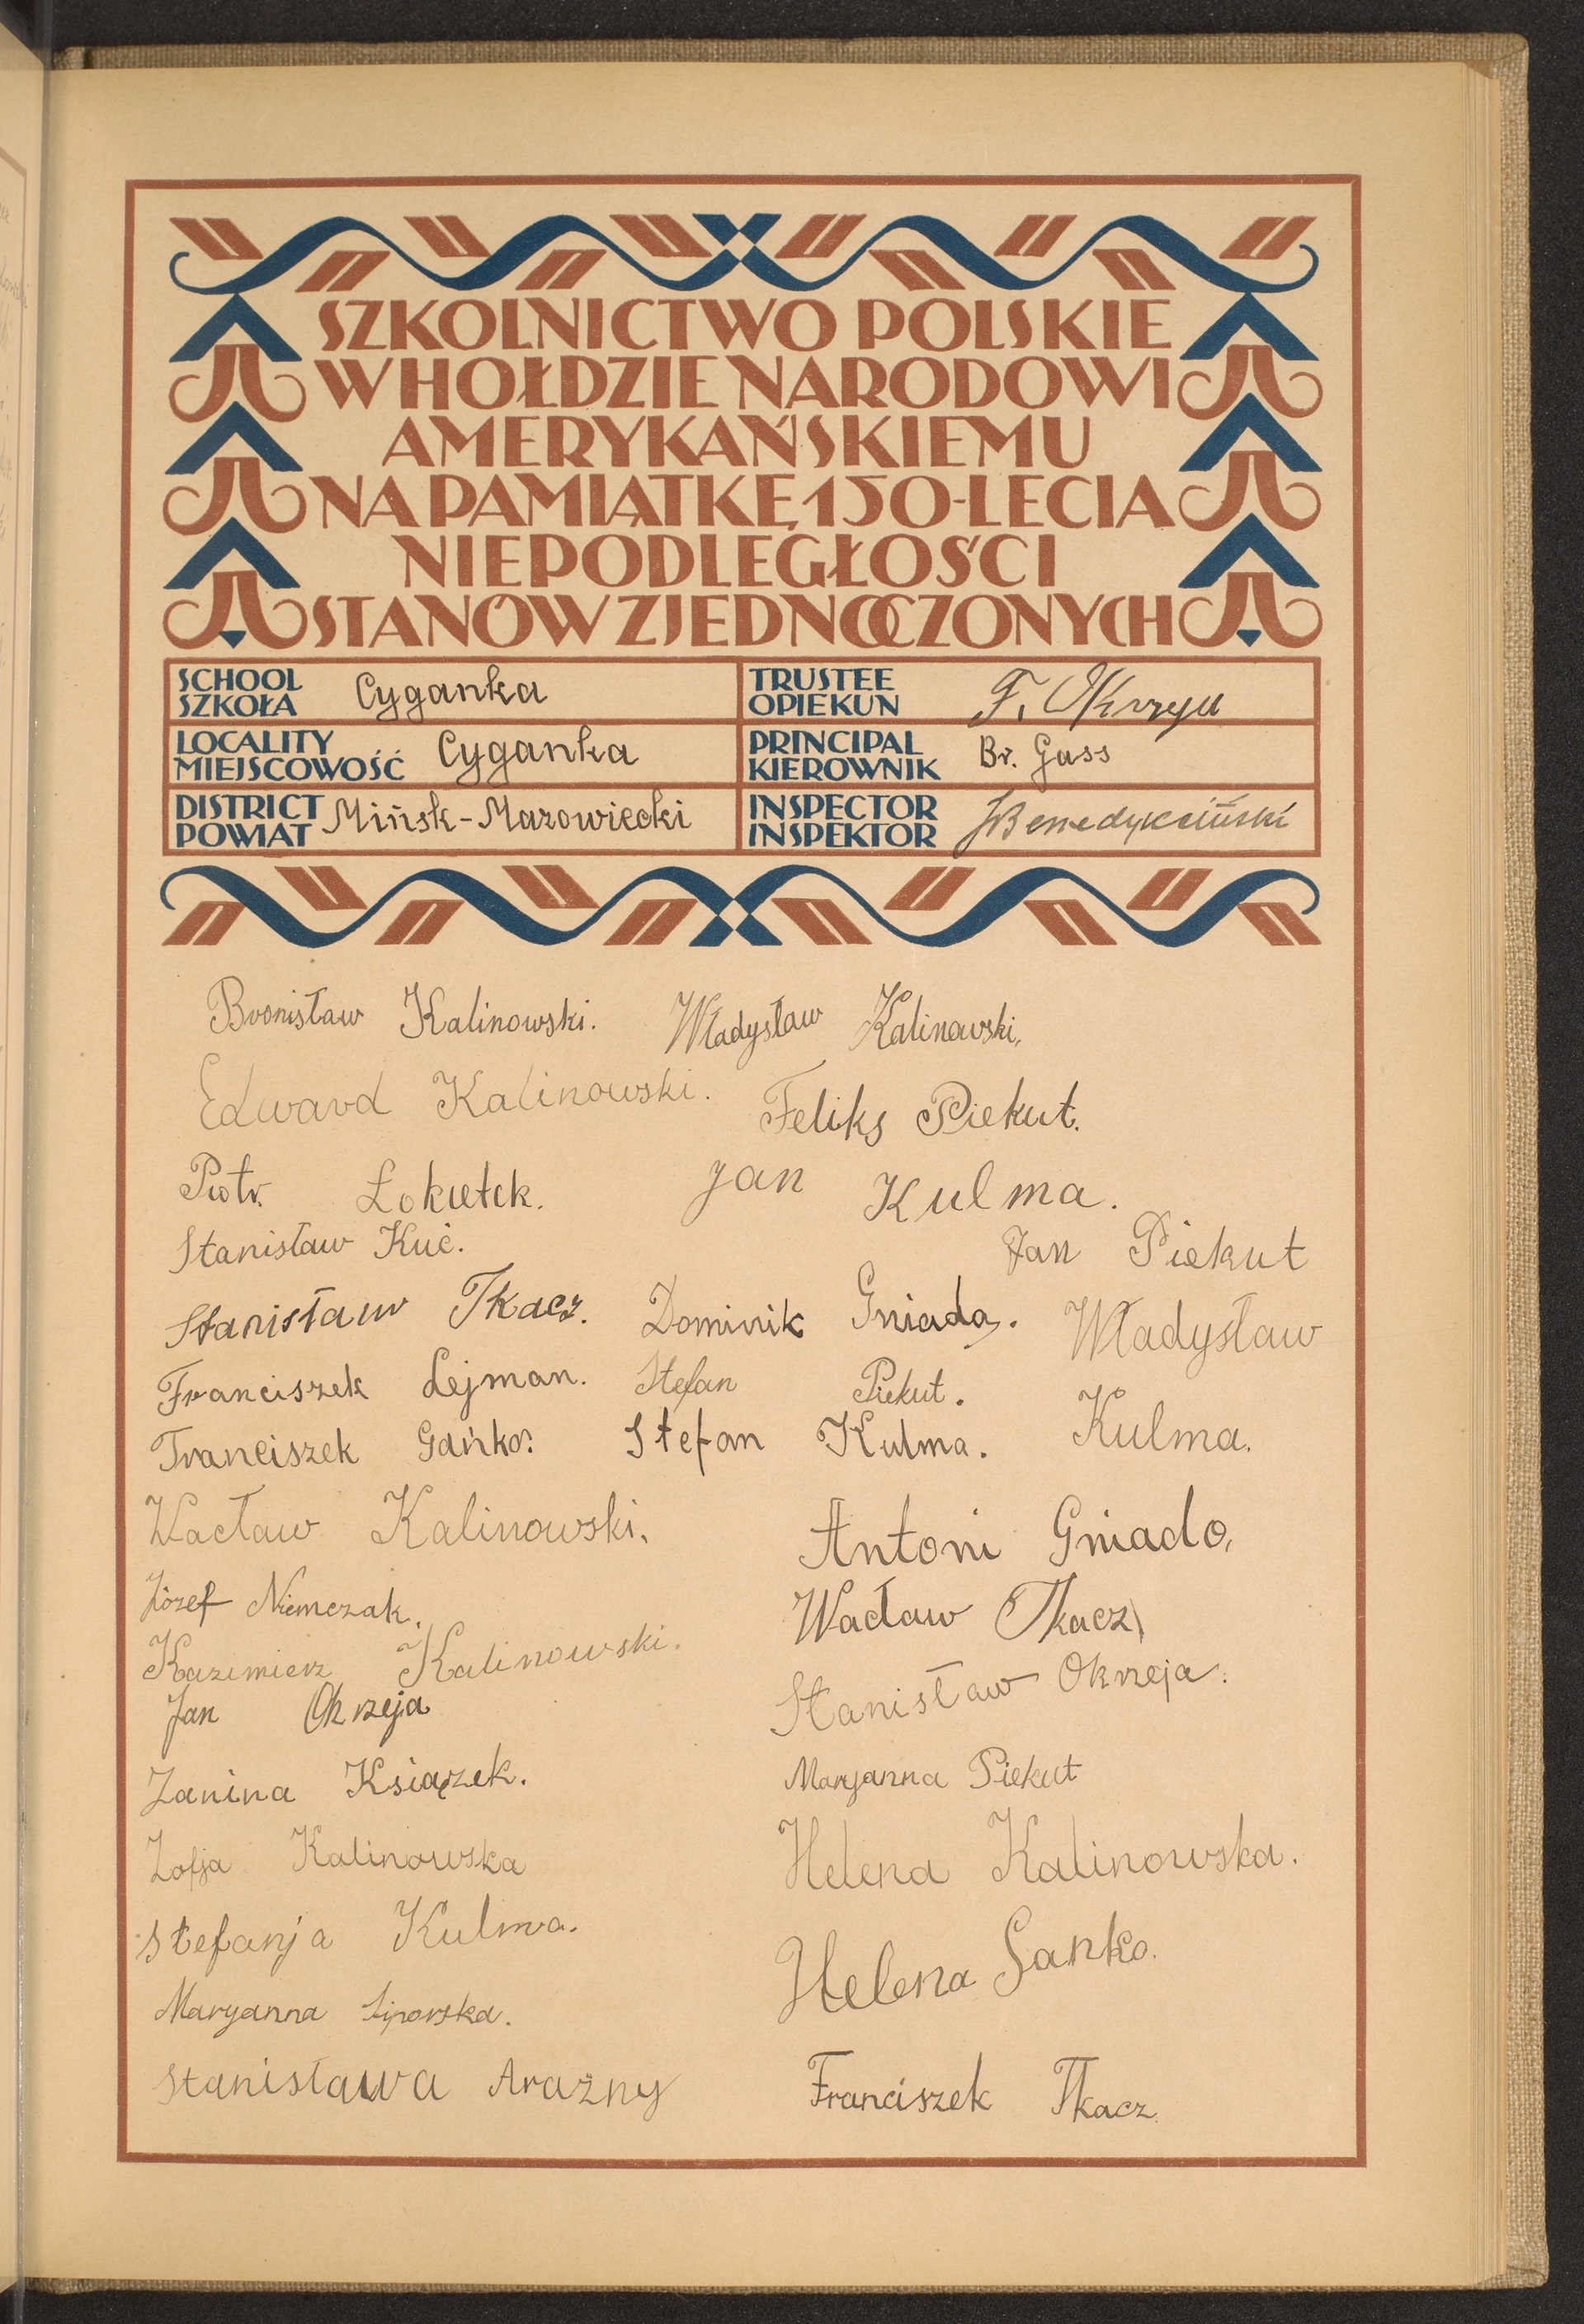 SZKOLNICTWO POLSKIE
W HOŁDZIE NARODOWI
AMERYKAŃSKIEMU
NA PAMIĄTKĘ 150-LECIA
NIEPODLEGŁOŚCI
STANÓW ZJEDNOCZONYCH
SCHOOL SZKOŁA Cyganka
TRUSTEE OPIEKUN F.
LOCALITY MIEJSCOWOŚĆ Cyganka
PRINCIPAL KIEROWNIK Br. Gass
DISTRICT POWIAT Mińsk-Mazowiecki
INSPECTOR INSPEKTOR
Bronisław Kalinowski. Władysław Kalinowski.
Edward Kalinowski. Feliks Piekut.
Piotr. Łokietek. Jan Kulma.
Stanisław Kuć. Jan Piekut
Stanisław Tkacz. Dominik Gniado. Władysław
Franciszek Lejman. Stefan Piekut. Kulma.
Franciszek Gańko. Stefan Kulma.
Wacław Kalinowski. Antoni Gniado,
Józef Niemczak. Wacław Tkacz
Kazimierz Kalinowski. Stanisław Okrzeja.
Jan Okrzeja
Janina Książek. Maryanna Piekut
Zofja Kalinowska Helena Kalinowska.
Stefanja Kulma. Helena Gańko.
Maryanna
Stanisława Araźny Franciszek Tkacz